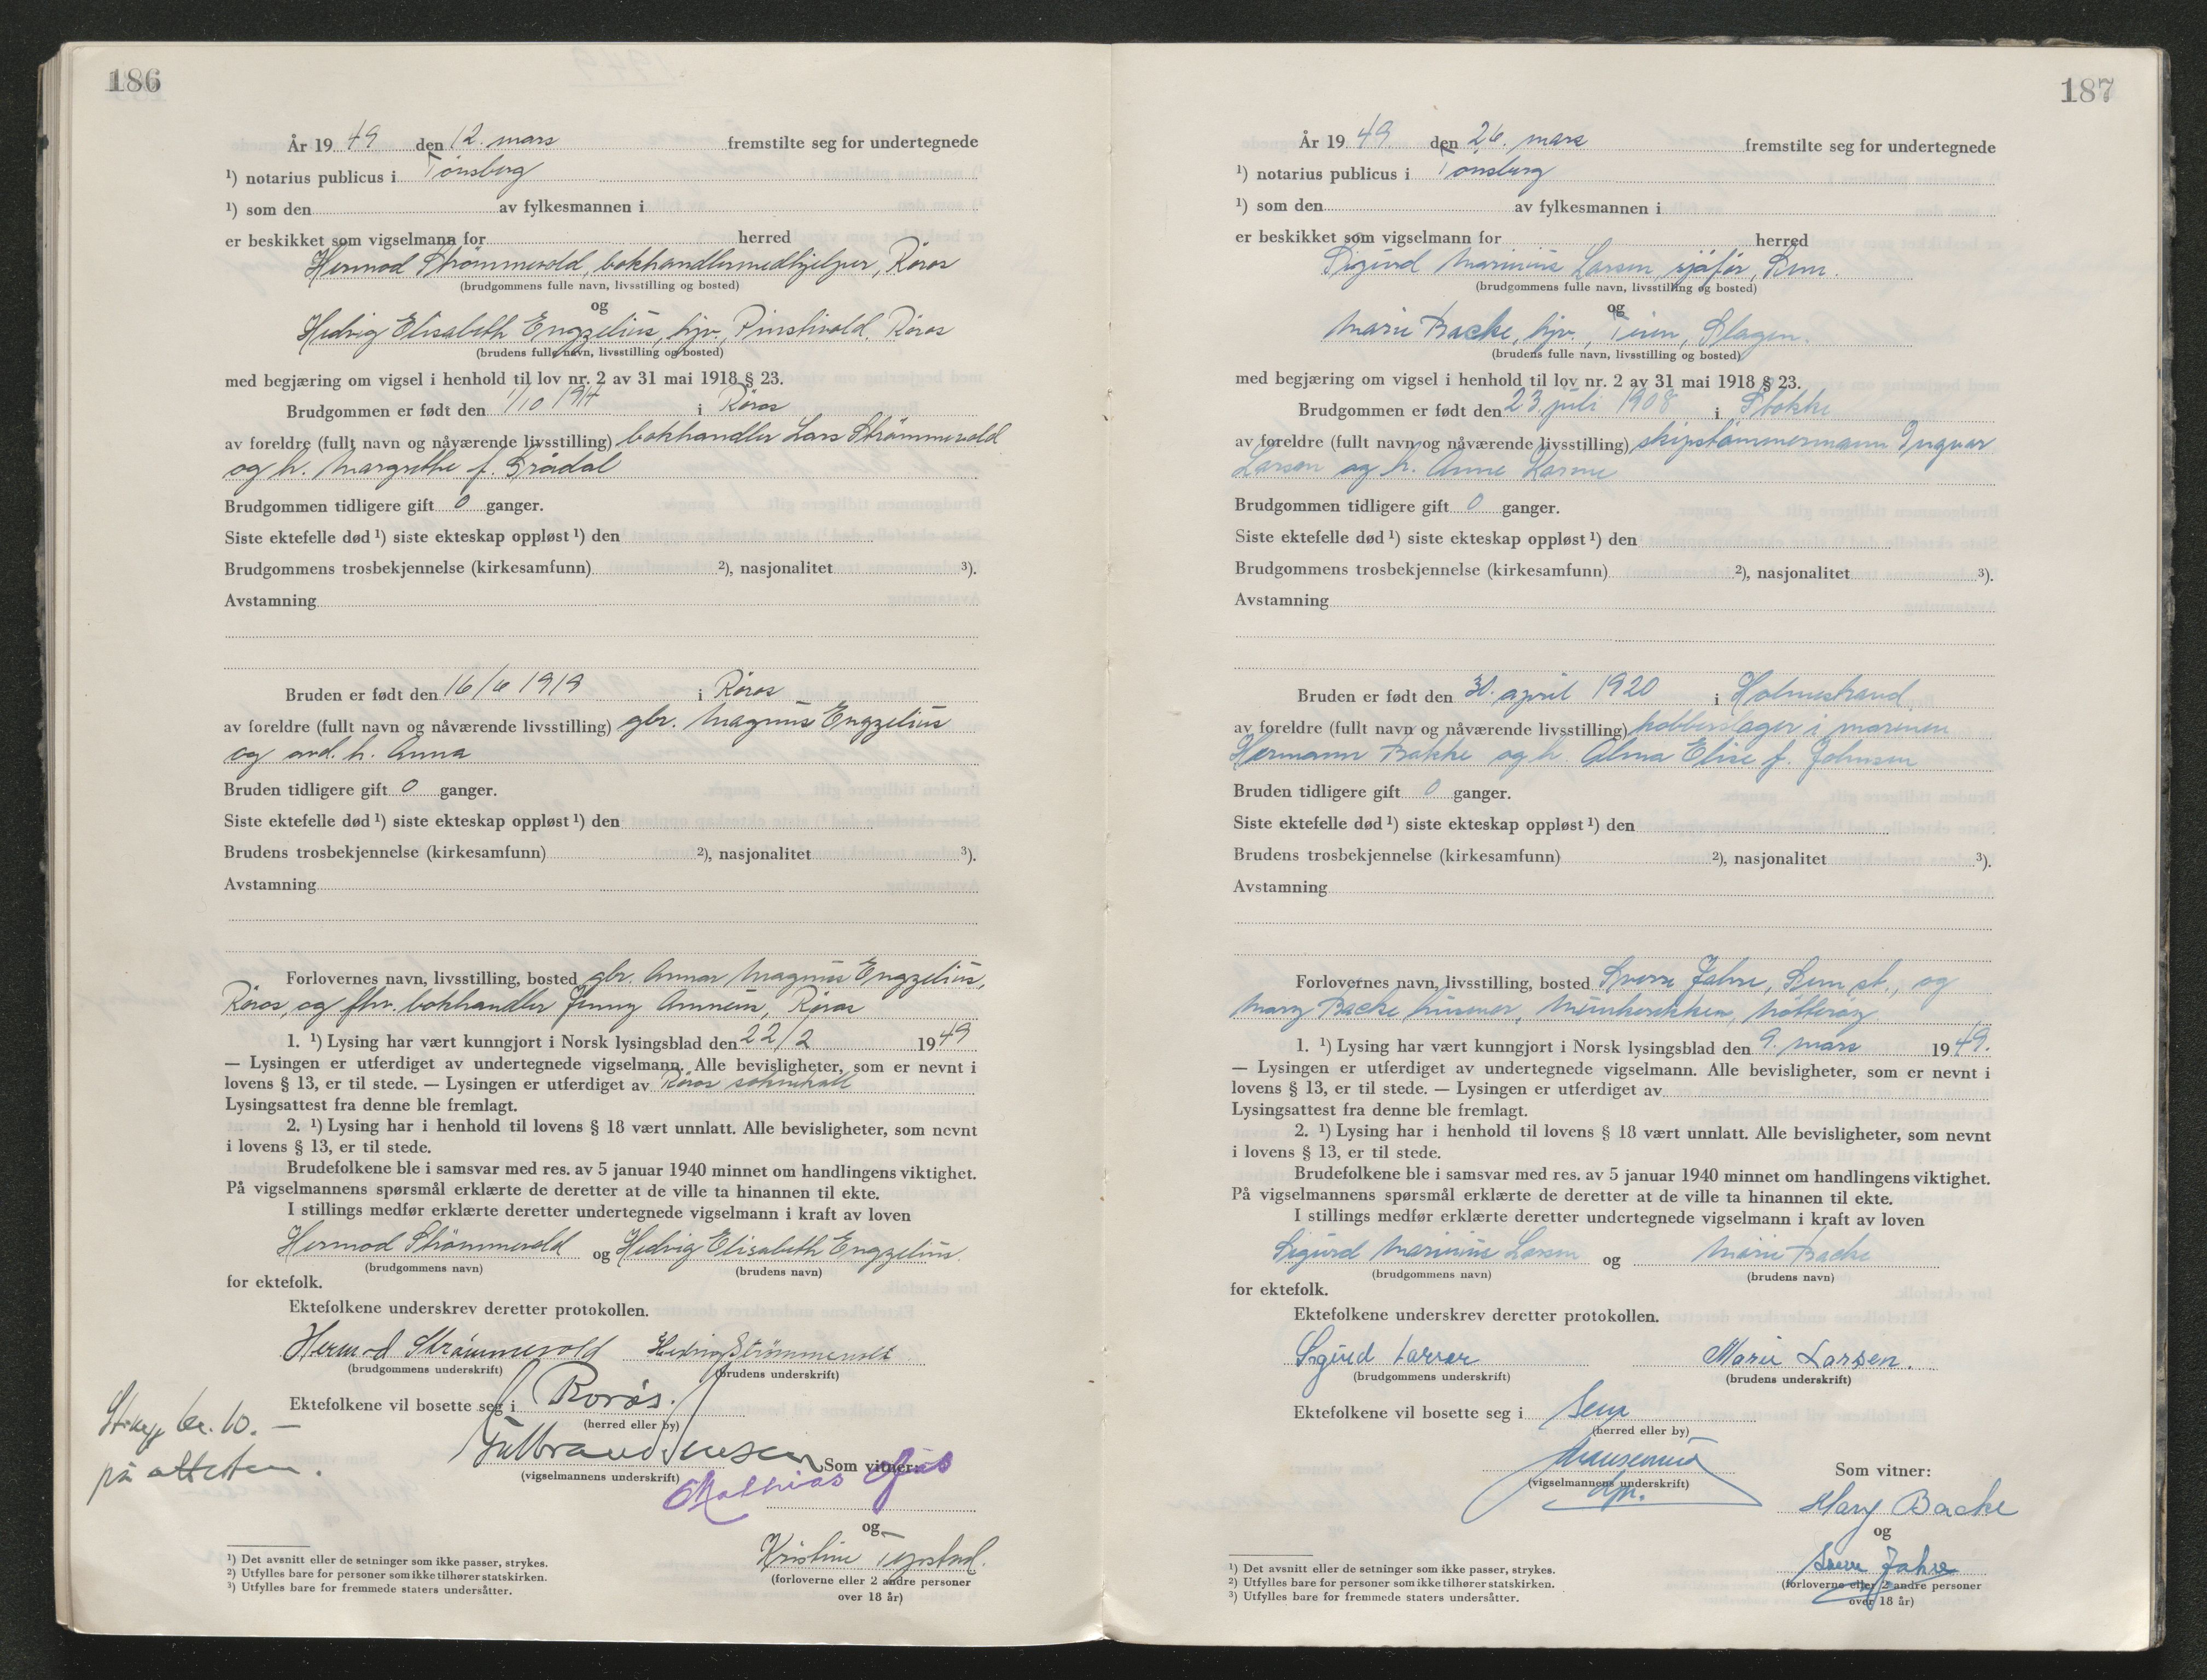 186
År 19 49 den 12. mars fremstilte seg for undertegnede
¹) notarius publicus i Tønsberg
¹) som den av fylkesmannen i
er beskikket som vigselmann for herred
Hermod Strømmevold, bokhandlermedhjelper, Röros
(brudgommens fulle navn, livsstilling og bosted)
og
Hedvig Elisabeth Engzelius, hjv., Röros
(brudens fulle navn, livsstilling og bosted)
med begjæring om vigsel i henhold til lov nr. 2 av 31 mai 1918 § 23.
Brudgommen er født den 1/10 1914 i Röros
av foreldre (fullt navn og nåværende livsstilling) bokhandler Lars Strømmevold
og h. Margrethe f. Grådal
Brudgommen tidligere gift 0 ganger.
Siste ektefelle død ¹) siste ekteskap oppløst ¹) den
Brudgommens trosbekjennelse (kirkesamfunn) ²), nasjonalitet ³).
Avstamning
Bruden er født den 16/6 1919 i Röros
av foreldre (fullt navn og nåværende livsstilling) gbr. Magnus Engzelius
og avd. h. Anna
Bruden tidligere gift 0 ganger.
Siste ektefelle død ¹) siste ekteskap oppløst ¹) den
Brudens trosbekjennelse (kirkesamfunn) ²), nasjonalitet ³).
Avstamning
Forlovernes navn, livsstilling, bosted gbr. Annar Magnus Engzelius,
Röros, og fhv. bokhandler Jenny Amneus, Röros
1. ¹) Lysing har vært kunngjort i Norsk lysingsblad den 22/2 19 49
— Lysingen er utferdiget av undertegnede vigselmann. Alle bevisligheter, som er nevnt i
lovens § 13, er til stede. — Lysingen er utferdiget av Röros soknekall
Lysingsattest fra denne ble fremlagt.
2. ¹) Lysing har i henhold til lovens § 18 vært unnlatt. Alle bevisligheter, som nevnt
i lovens § 13, er til stede.
Brudefolkene ble i samsvar med res. av 5 januar 1940 minnet om handlingens viktighet.
På vigselmannens spørsmål erklærte de deretter at de ville ta hinannen til ekte.
I stillings medfør erklærte deretter undertegnede vigselmann i kraft av loven
Hermod Strømmevold og Hedvig Elisabeth Engzelius
(brudgommens navn) (brudens navn)
for ektefolk.
Ektefolkene underskrev deretter protokollen.
Hermod Strømmevold Hedvig Strømmevold
(brudgommens underskrift) (brudens underskrift)
Ektefolkene vil bosette seg i Rorøs.
(herred eller by)
kr. 10. —
på attesten.
(vigselmannens underskrift) Som vitner:
Mathias
og
Kristine
(forloverne eller 2 andre personer
over 18 år)
¹) Det avsnitt eller de setninger som ikke passer, strykes.
²) Utfylles bare for personer som ikke tilhører statskirken.
³) Utfylles bare for fremmede staters undersåtter.
187
År 19 49 den 26. mars fremstilte seg for undertegnede
¹) notarius publicus i Tønsberg
¹) som den av fylkesmannen i
er beskikket som vigselmann for herred
Sigurd Marinius Larsen, sjåför, Sem.
(brudgommens fulle navn, livsstilling og bosted)
og
Marie Backe, hjv., Teien, Slagen.
(brudens fulle navn, livsstilling og bosted)
med begjæring om vigsel i henhold til lov nr. 2 av 31 mai 1918 § 23.
Brudgommen er født den 23. juli 1908 i Stokke
av foreldre (fullt navn og nåværende livsstilling) skipstømmermann Ingvar
Larsen og h. Anne
Brudgommen tidligere gift 0 ganger.
Siste ektefelle død ¹) siste ekteskap oppløst ¹) den
Brudgommens trosbekjennelse (kirkesamfunn) ²), nasjonalitet ³).
Avstamning
Bruden er født den 30. april 1920 i Holmestrand
av foreldre (fullt navn og nåværende livsstilling) kobberslager i marinen
Hermann Bakke og h. Alma Elise f. Johnsen
Bruden tidligere gift 0 ganger.
Siste ektefelle død ¹) siste ekteskap oppløst ¹) den
Brudens trosbekjennelse (kirkesamfunn) ²), nasjonalitet ³).
Avstamning
Forlovernes navn, livsstilling, bosted Sverre Jahre, Sem st., og
Mary Backe, Nøtterøy.
1. ¹) Lysing har vært kunngjort i Norsk lysingsblad den 9. mars 19 49.
— Lysingen er utferdiget av undertegnede vigselmann. Alle bevisligheter, som er nevnt i
lovens § 13, er til stede. — Lysingen er utferdiget av
Lysingsattest fra denne ble fremlagt.
2. ¹) Lysing har i henhold til lovens § 18 vært unnlatt. Alle bevisligheter, som nevnt
i lovens § 13, er til stede.
Brudefolkene ble i samsvar med res. av 5 januar 1940 minnet om handlingens viktighet.
På vigselmannens spørsmål erklærte de deretter at de ville ta hinannen til ekte.
I stillings medfør erklærte deretter undertegnede vigselmann i kraft av loven
Sigurd Marinius Larsen og Marie Backe
(brudgommens navn) (brudens navn)
for ektefolk.
Ektefolkene underskrev deretter protokollen.
Sigurd Larsen Marie Larsen.
(brudgommens underskrift) (brudens underskrift)
Ektefolkene vil bosette seg i Sem
(herred eller by)
(vigselmannens underskrift) Som vitner:
Mary Backe
og
Sverre Jahre
(forloverne eller 2 andre personer
over 18 år)
¹) Det avsnitt eller de setninger som ikke passer, strykes.
²) Utfylles bare for personer som ikke tilhører statskirken.
³) Utfylles bare for fremmede staters undersåtter.